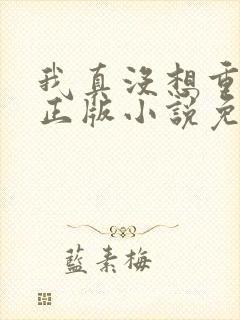 我真没想重
正版小說免
藍素梅